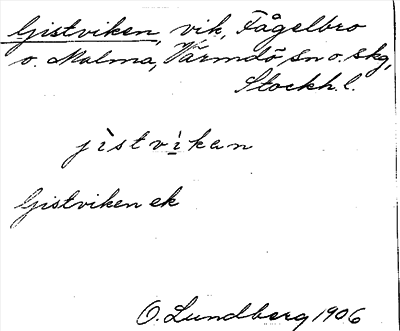 Gistviken, vik, Fågelbro
o. Malma, Värmdö sn o. skg,
Stockh. l.
jìstvìkan
Gistviken ek
O. Lundberg 1906